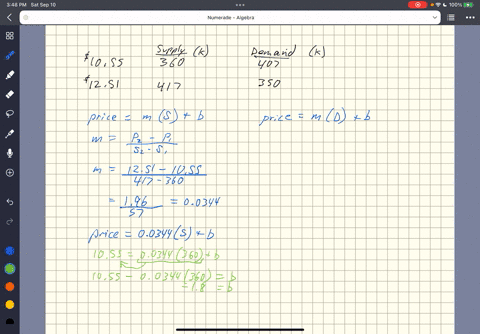 3:48 PM Sat Sep 10
100%
Numerade - Algebra
Supply (k) Demand (k)
$10.55 360 407
$12.51 417 350
price = m(S) + b price = m(D) + b
m = P2 - P1 / S2 - S1
m = 12.51 - 10.55 / 417 - 360
= 1.96 / 57 = 0.0344
price = 0.0344(S) + b
10.55 = 0.0344(360) + b
10.55 - 0.0344(360) = b
-1.8 = b